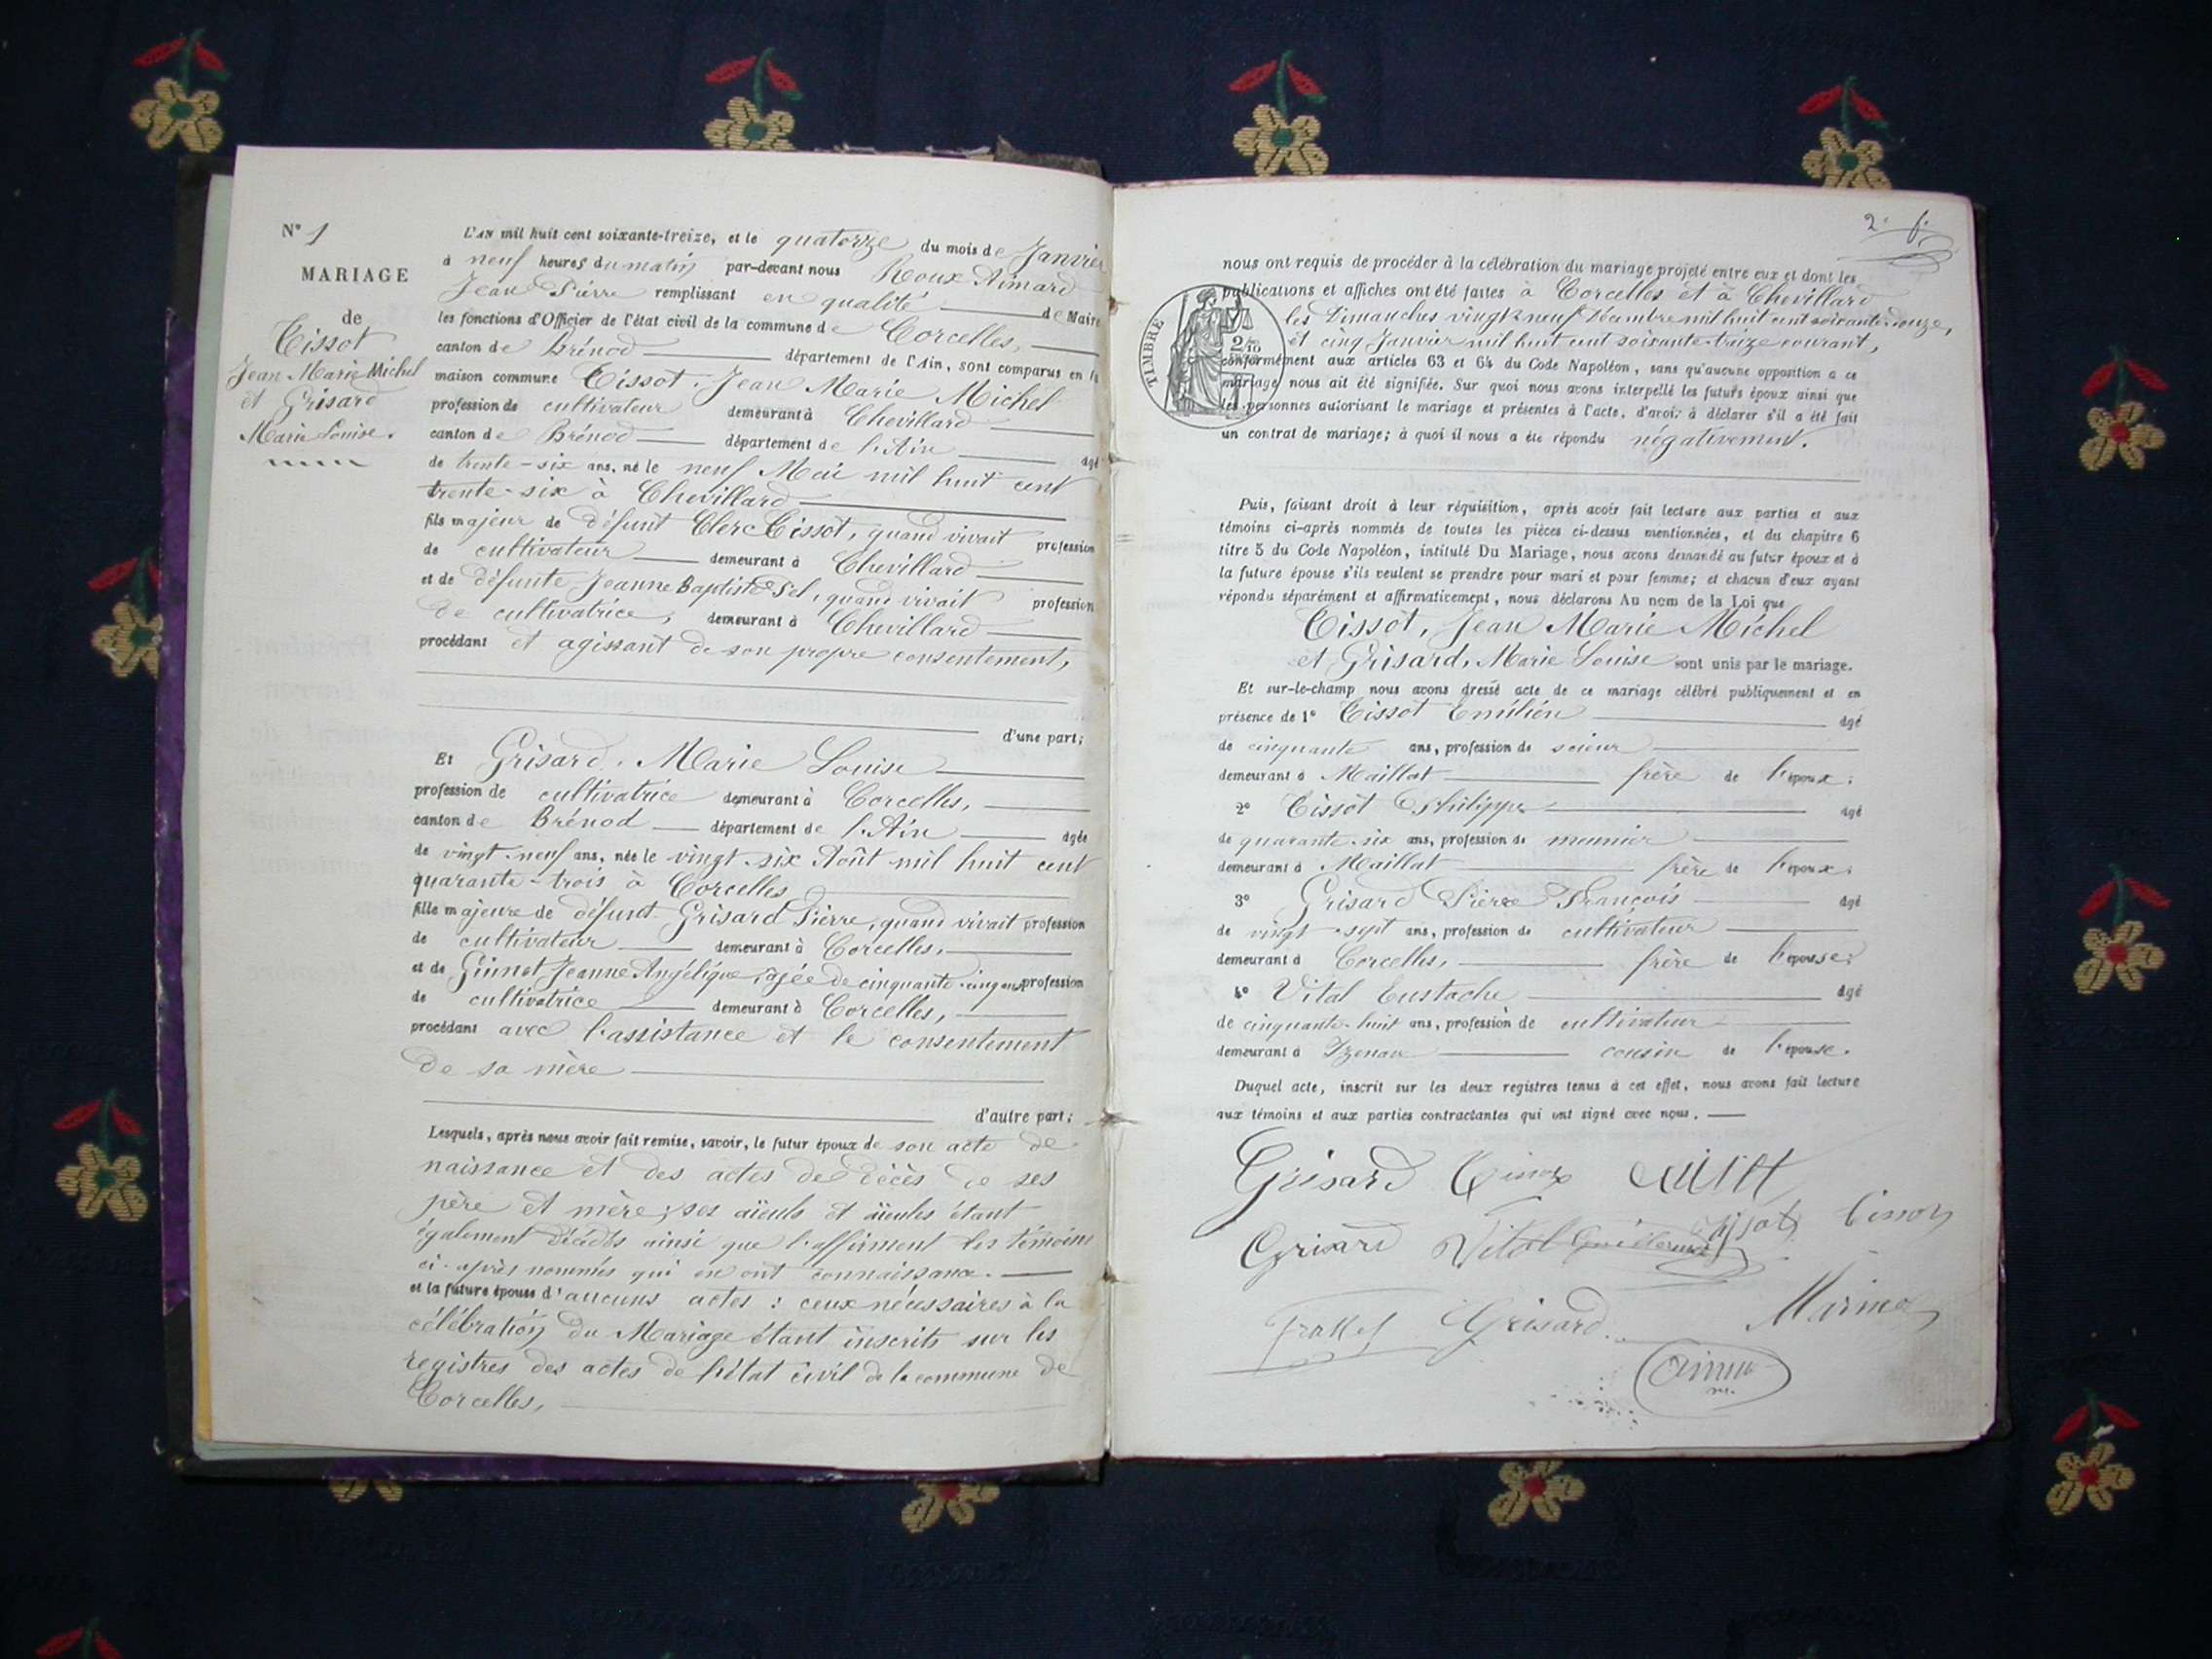 N° 1
MARIAGE
de
Tissot
Jean Marie Michel
et Grisard
Marie Louise.
L'AN mil huit cent soixante-treize, et le quatorze du mois de Janvier
à neuf heures du matin par-devant nous Roux Aimard
Jean Pierre remplissant en qualité de Maire
les fonctions d'Officier de l'état civil de la commune de Corcelles,
canton de Brénod département de l'Ain, sont comparus en la
maison commune Tissot, Jean Marie Michel
profession de cultivateur demeurant à Chevillard
canton de Brénod département de l'Ain agé
de trente-six ans, né le neuf Mai mil huit cent
trente-six à Chevillard
fils majeur de défunt Clerc Tissot, quand vivait profession
de cultivateur demeurant à Chevillard
et de défunte Jeanne Baptiste Sel, quand vivait profession
de cultivatrice, demeurant à Chevillard
procédant et agissant de son propre consentement,
d'une part;
Et Grisard, Marie Louise
profession de cultivatrice demeurant à Corcelles,
canton de Brénod département de l'Ain agée
de vingt-neuf ans, née le vingt-six Août mil huit cent
quarante-trois à Corcelles
fille majeure de défunt Grisard Pierre, quand vivait profession
de cultivateur demeurant à Corcelles,
et de Jeanne Angélique, agée de cinquante-cinq ans profession
de cultivatrice demeurant à Corcelles,
procédant avec l'assistance et le consentement
de sa mère
d'autre part;
Lesquels, après nous avoir fait remise, savoir, le futur époux de son acte de
naissance et des actes de décès de ses
père et mère; ses aïeuls et aïeules étant
également décédés ainsi que l'affirment les témoins
ci-après nommés qui en ont connaissance.
et la future épouse d'aucuns actes : ceux nécessaires à la
célébration du Mariage étant inscrits sur les
registres des actes de l'état civil de la commune de
Corcelles,
2e f.
nous ont requis de procéder à la célébration du mariage projeté entre eux et dont les
publications et affiches ont été faites à Corcelles et à Chevillard
les Dimanches vingt neuf Décembre mil huit cent soixante-douze,
et cinq Janvier mil huit cent soixante-treize courant,
TIMBRE
2/10
conformément aux articles 63 et 64 du Code Napoléon, sans qu'aucune opposition a ce
mariage nous ait été signifiée. Sur quoi nous avons interpellé les futurs époux ainsi que
les personnes autorisant le mariage et présentes à l'acte, d'avoir à déclarer s'il a été fait
un contrat de mariage; à quoi il nous a été répondu négativement.
Puis, faisant droit à leur réquisition, après avoir fait lecture aux parties et aux
témoins ci-après nommés de toutes les pièces ci-dessus mentionnées, et du chapitre 6
titre 5 du Code Napoléon, intitulé Du Mariage, nous avons demandé au futur époux et à
la future épouse s'ils veulent se prendre pour mari et pour femme; et chacun d'eux ayant
répondu séparément et affirmativement, nous déclarons Au nom de la Loi que
Tissot, Jean Marie Michel
et Grisard, Marie Louise sont unis par le mariage.
Et sur-le-champ nous avons dressé acte de ce mariage célébré publiquement et en
présence de 1° Tissot Emilien agé
de cinquante ans, profession de scieur
demeurant à Maillat frère de l'époux;
2° Tissot Philippe agé
de quarante-six ans, profession de meunier
demeurant à Maillat frère de l'époux;
3° Grisard Pierre François agé
de vingt-sept ans, profession de cultivateur
demeurant à Corcelles, frère de l'épouse;
4° Vital Eustache agé
de cinquante-huit ans, profession de cultivateur
demeurant à Izenave cousin de l'épouse.
Duquel acte, inscrit sur les deux registres tenus à cet effet, nous avons fait lecture
aux témoins et aux parties contractantes qui ont signé avec nous.
Grisard
Grisard Vital
Grisard